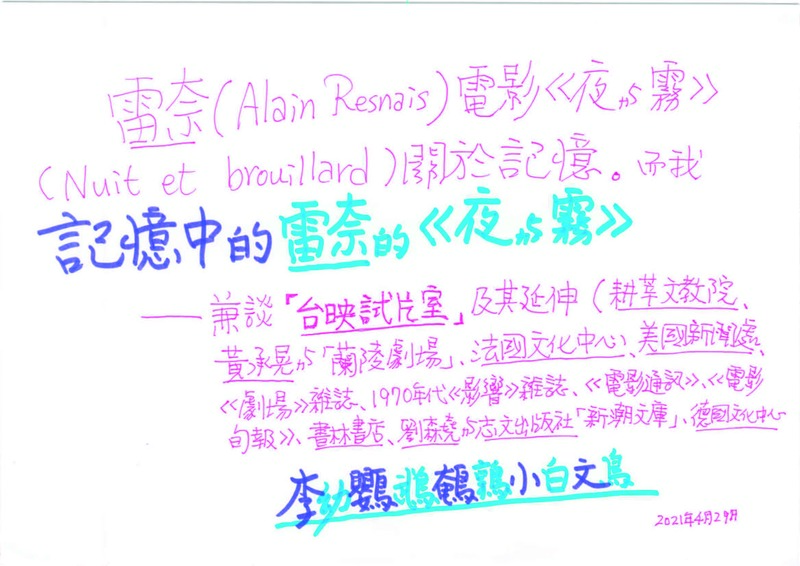 雷奈(Alain Resnais)電影《夜から霧》
(Nuit et brouillard)關於記憶。而我
記憶中的雷奈的《夜から霧》
——兼談「台映試片室」及其延伸(耕莘文教院、
黃承晃から「蘭陵劇場」、法國文化中心、美國新聞處、
《劇場》雜誌、1970年代《影響》雜誌、《電影通訊》、《電影
旬報》、書林書店、劉森堯から志文出版社「新潮文庫」、德國文化中心
李幼鸚鵡鵪鶉小白文鳥
2021年4月29日